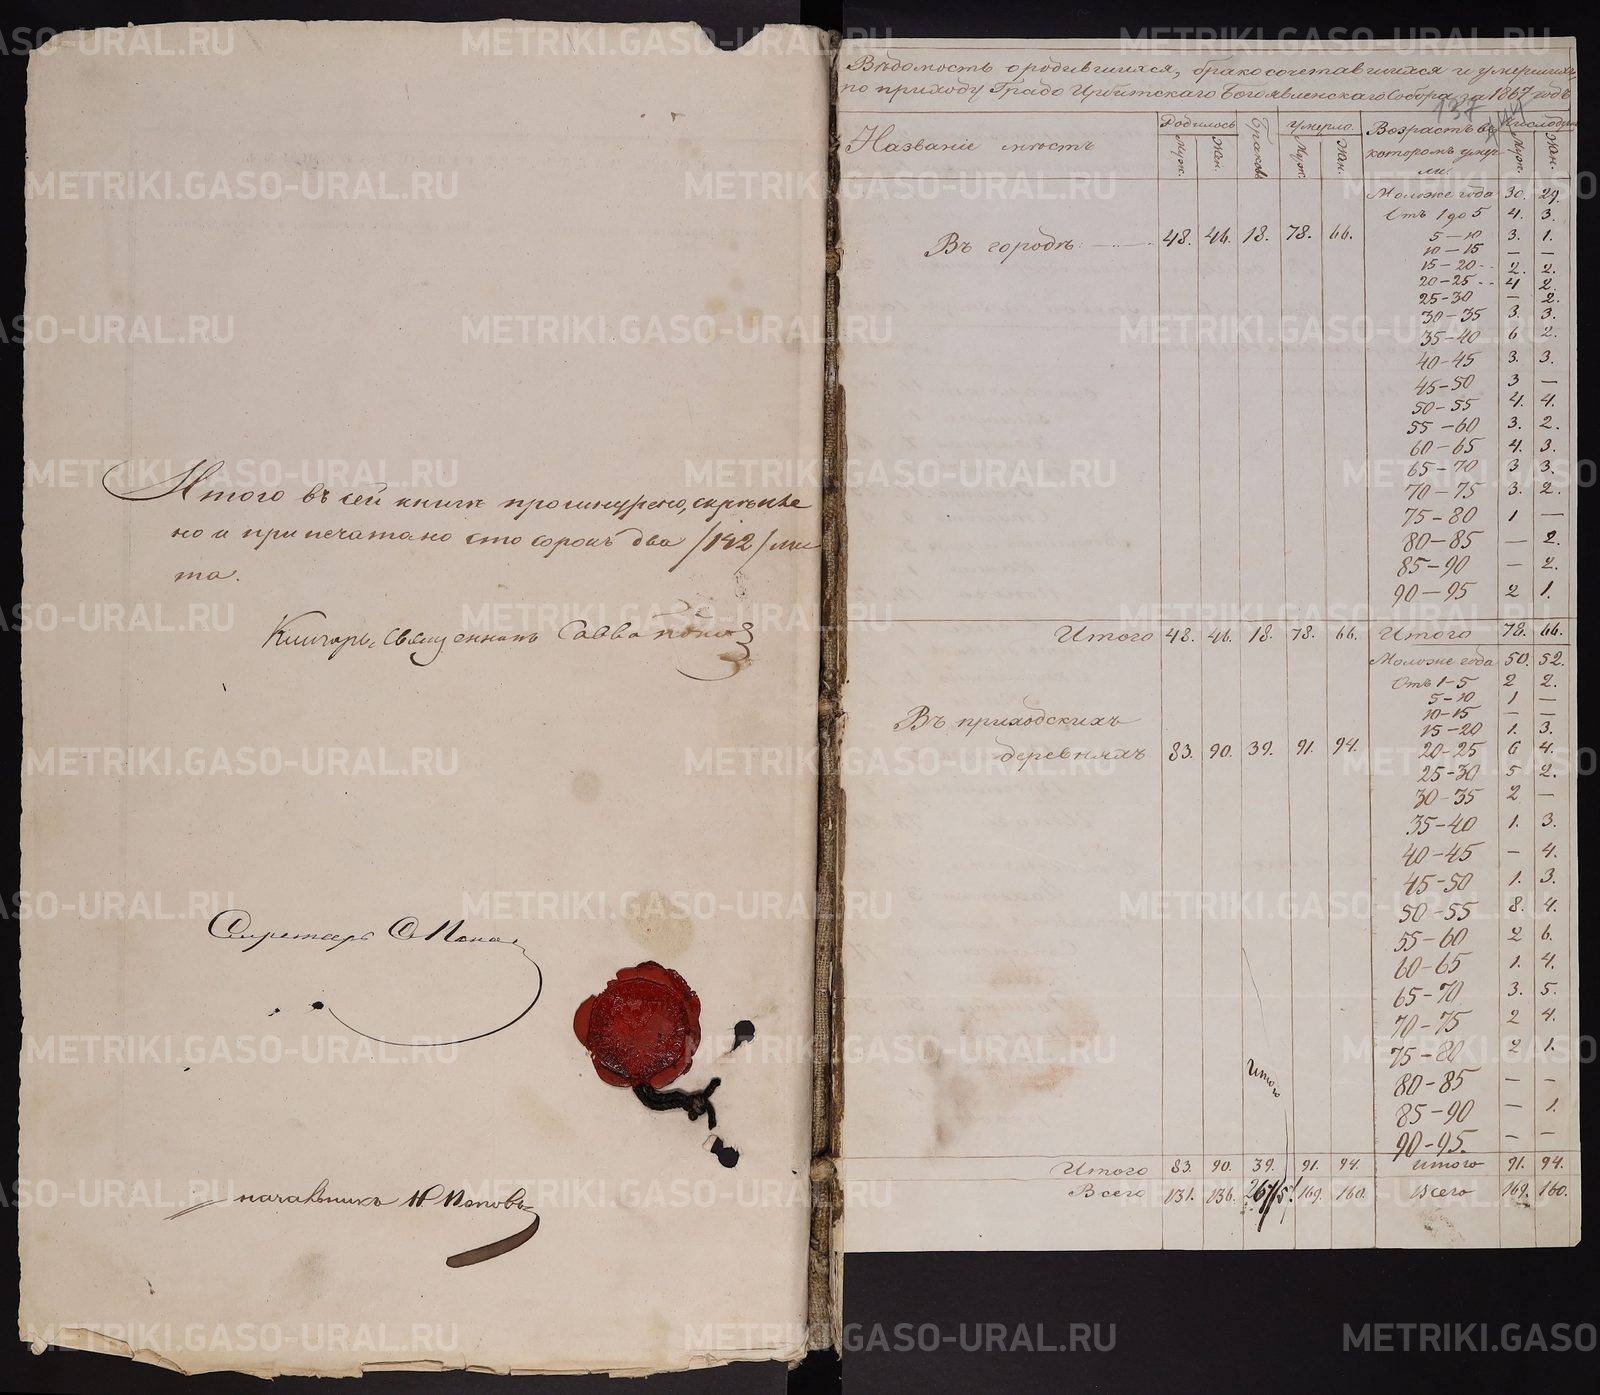 Итого въ сей книгѣ прошнуровано, скрѣпле
но и припечатано сто сорокъ два /142/ лис
та.
Ключарь, Священникъ Савва Попов
Секретарь
Начальникъ Н. Поповъ
Вѣдомость о родившихся, бракосочетавшихся и умершихъ
по приходу Градо Ирбитскаго Богоявленскаго Собора за 1867 годъ
137
Названіе мѣстъ Родилось Браковъ Умерло Возрастъ въ которомъ умерли Число душ
Муж. Жен. Муж. Жен. Муж. Жен.
Моложе года 30. 29.
Отъ 1 до 5 4. 3.
Въ городѣ 48. 46. 18. 78. 66. 5-10 3. 1.
10-15 — —
15-20 2. 2.
20-25 4 2.
25-30 — 2.
30-35 3. 3.
35-40 6 2.
40-45 3. 3.
45-50 3 —
50-55 4. 4.
55-60 3. 2.
60-65 4. 3.
65-70 3 3.
70-75 3. 2.
75-80 1 —
80-85 — 2.
85-90 — 2.
90-95 2 1.
Итого 48. 46. 18. 78. 66. Итого 78. 66.
Моложе года 50. 52.
Отъ 1-5 2 2.
5-10 1 —
10-15 — —
15-20 1. 3.
Въ приходскихъ
деревняхъ 83. 90. 39. 91. 94. 20-25 6 4.
25-30 5 2.
30-35 2 —
35-40 1. 3.
40-45 — 4.
45-50 1. 3.
50-55 8. 4.
55-60 2 6.
60-65 1. 4.
65-70 3. 5.
70-75 2 4.
75-80 2 1.
Итого
80-85 — —
85-90 — 1.
90-95. — —
Итого 83. 90. 39. 91. 94. Итого 91. 94.
Всего 131. 136. 267/57 169. 160. Всего 169. 160.
METRIKI.GASO-URAL.RU